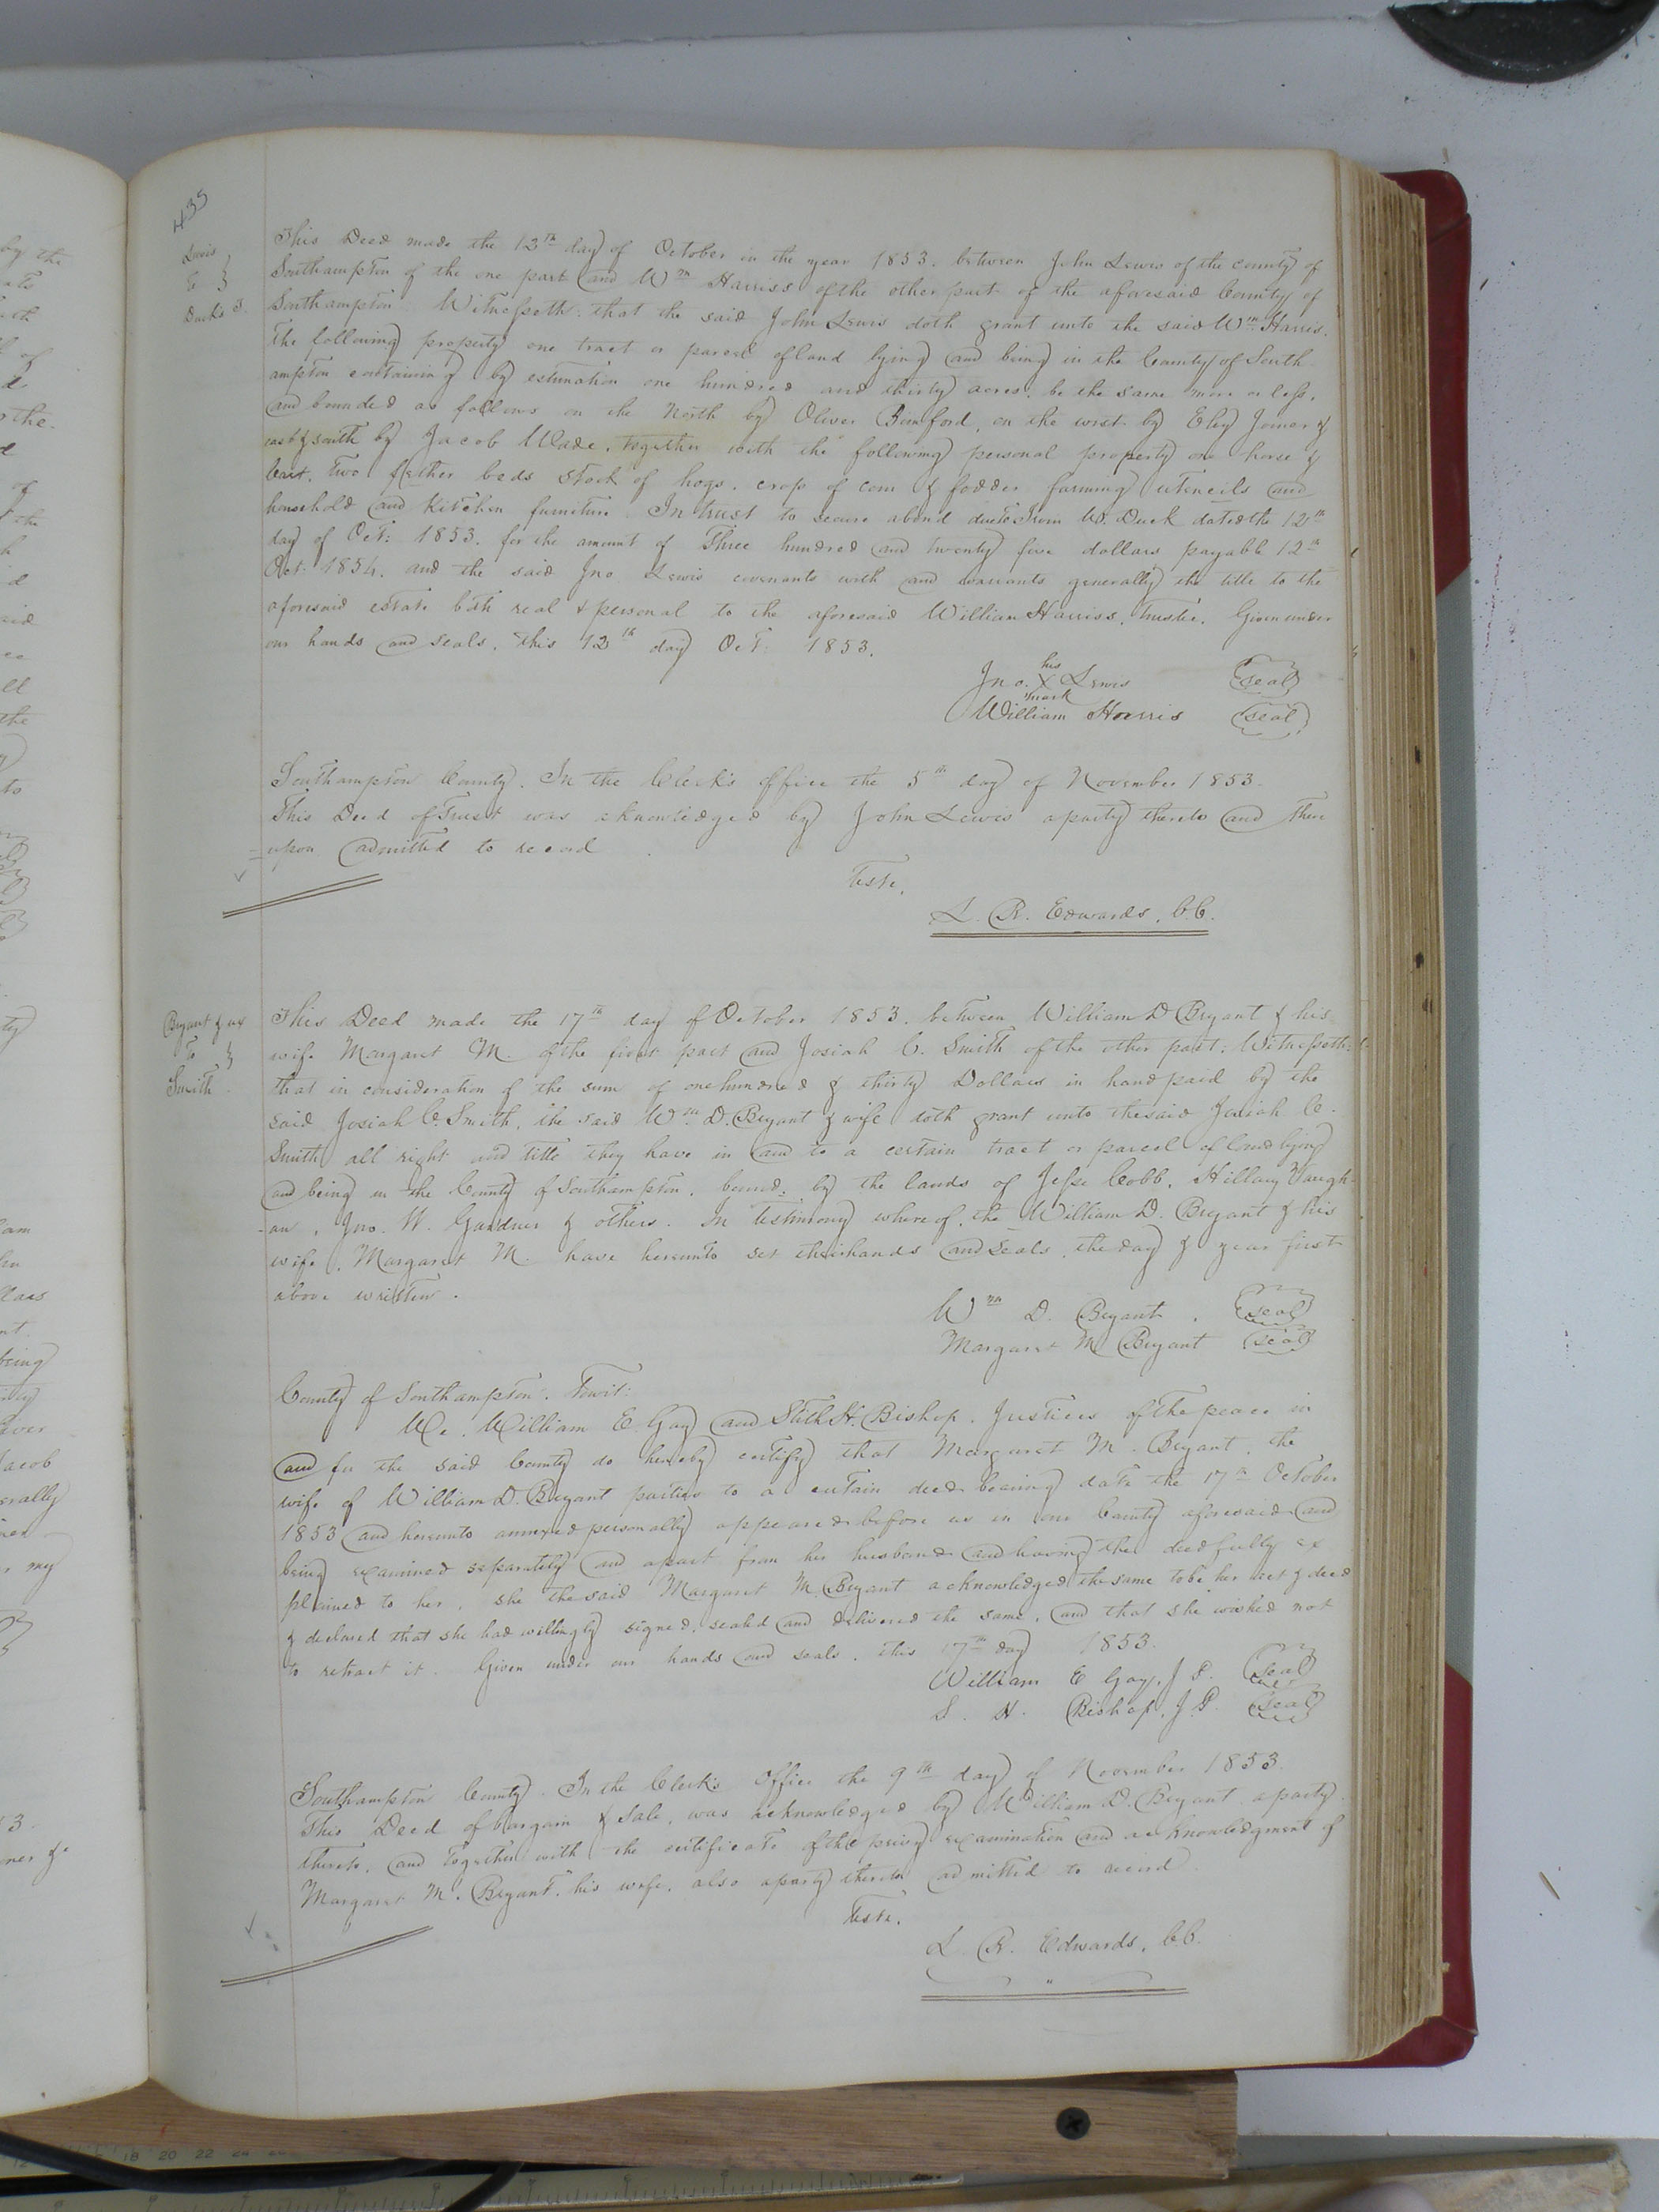 435
Lewis
to
Duck's
This Deed made the 12th day of October in the year 1853. between John Lewis of the county of
Southampton of the one part and Wm Harriss of the other part of the aforesaid County of
Southampton Witnesseth: that the said John Lewis doth grant unto the said Wm Harris.
the following property one tract or parcel of land lying and being in the County of South
ampton containing by estimation one hundred and thirty acres, be the same more or less,
and bounded as follows on the North by Oliver Binford, on the west by Eley Joiner &
east & south by Jacob Wade, together with the following personal property one horse &
cart, two feather beds stock of hogs, crop of corn & fodder farming utencils and
household and Kitchen furniture In trust to secure a bond due to W. Duck dated the 12th
day of Oct: 1853. for the amount of Three hundred and twenty five dollars payable 12th
Oct: 1854. and the said Jno Lewis covenants with and warrants generally the title to the
aforesaid estate both real & personal to the aforesaid William Harriss, trustee. Given under
our hands and seals, this 12th day Oct: 1853.
his
Jno. X Lewis (seal)
mark
William Harris (seal)
Southampton County. In the Clerk's office the 5th day of November 1853.
This Deed of Trust was acknowledged by John Lewis a party thereto and there
=upon admitted to record
Teste,
L. R. Edwards, C.C.
Bryant & ux
To
Smith
This Deed made the 17th day of October 1853. between William D Bryant & his
wife Margaret M. of the first part and Josiah C. Smith of the other part: Witnesseth:
that in consideration of the sum of one hundred & thirty Dollars in hand paid by the
said Josiah C. Smith, the said Wm D. Bryant & wife doth grant unto the said Josiah C.
Smith all right and title they have in and to a certain tract or parcel of land lying
and being in the County of Southampton, bound: by the lands of Jesse Cobb, Hillary Vaugh-
-an, Jno. W. Gardner & others. In testimony whereof, the William D. Bryant & his
wife, Margaret M. have hereunto set their hands and seals the day & year first
above written.
Wm D. Bryant. (seal)
Margaret M Bryant (seal)
County of Southampton. Towit:
We, William E. Gay and Stith H. Bishop, Justices of the peace in
and for the said County do hereby certify that Margaret M. Bryant, the
wife of William D. Bryant parties to a certain deed bearing date the 17th October
1853 and hereunto annexed personally appeared before us in our County aforesaid and
being examined separately and apart from her husband and having the deed fully ex
plained to her, she the said Margaret M. Bryant acknowledged the same to be her act & deed
& declared that she had willingly signed, sealed and delivered the same, and that she wished not
to retract it. Given under our hands and seals, this 17th day 1853.
William E Gay, J P. (seal)
S. H. Bishop, J.P. (seal)
Southampton County. In the Clerk's Office the 9th day of November 1853.
This Deed of bargain & Sale, was acknowledged by William D. Bryant a party
thereto, and together with the certificate of the privy examination and acknowledgment of
Margaret M. Bryant, his wife, also a party thereto admitted to record
Teste,
L. R. Edwards, C.C.